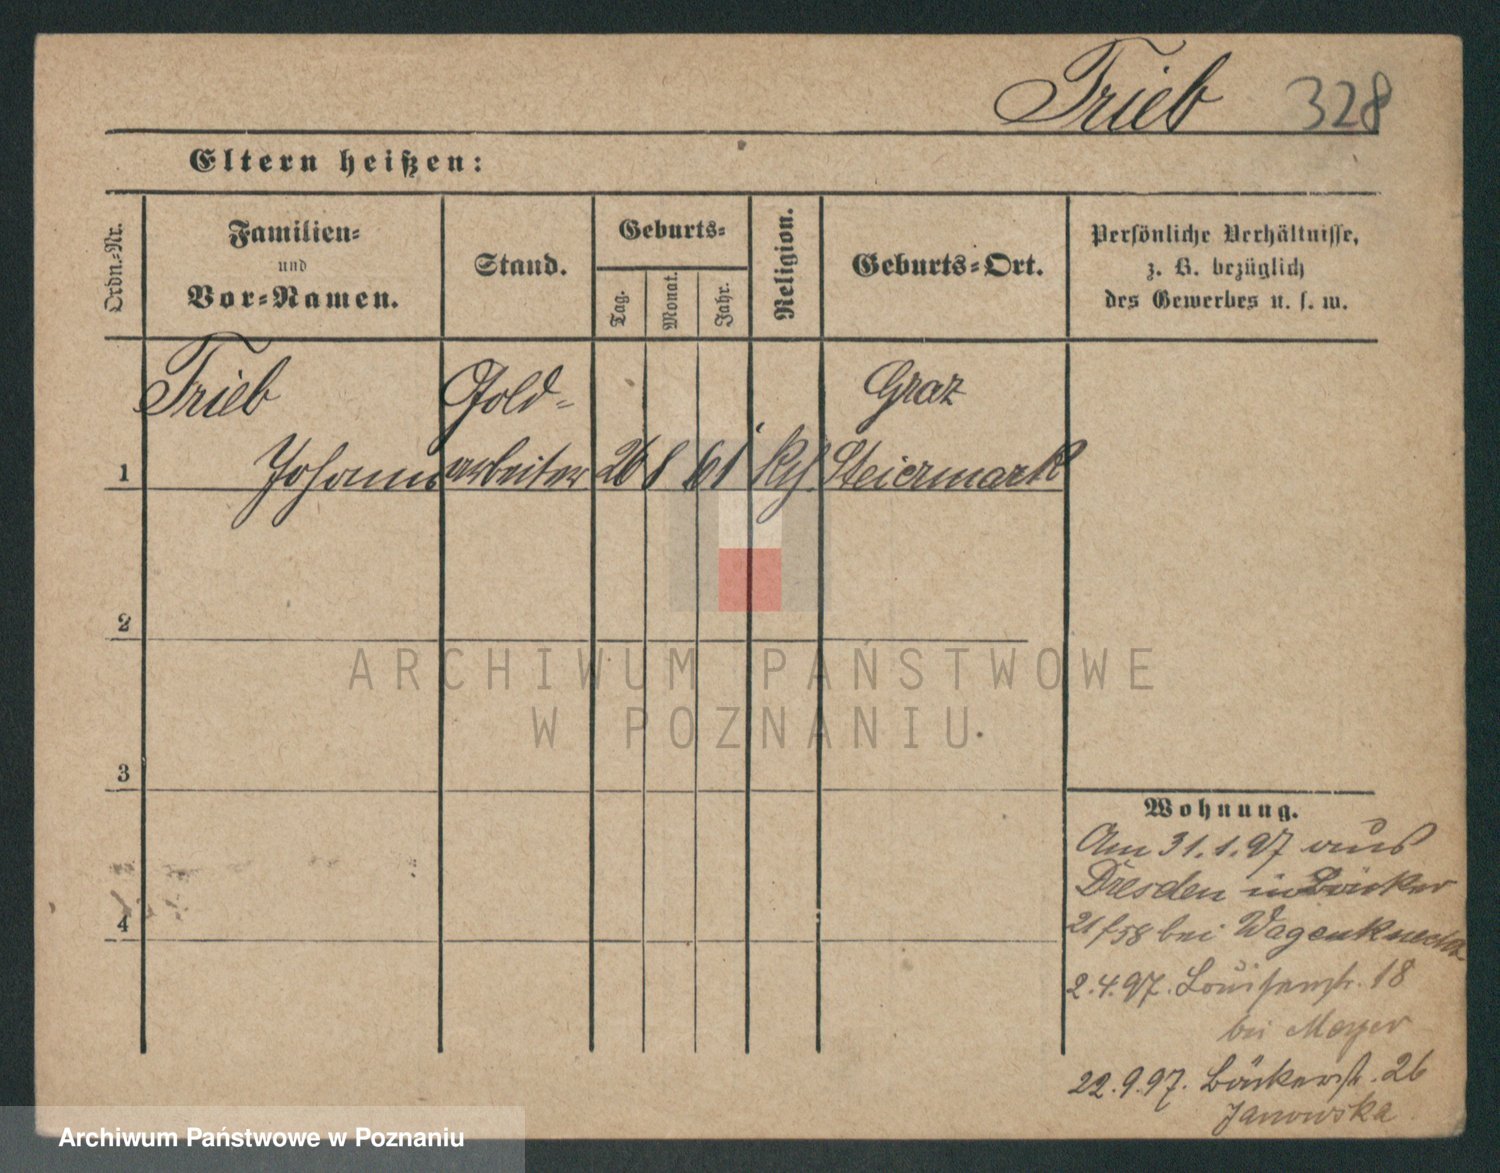 Trieb 328
Eltern heißen:
Ordn.-Nr.
Familien-
und
Vor-Namen.
Stand.
Geburts-
Tag.
Monat.
Jahr.
Religion.
Geburts-Ort.
Persönliche Verhältnisse,
z. B. bezüglich
des Gewerbes u. s. w.
Trieb Gold- Graz
1 Johann arbeiter 26 8 61 kth. Steiermark
2
3
4
Wohnung.
Am 31.1.97 aus
Dresden in Bäcker
21/58 bei Wagenknecht
2.4.97. Louisenstr. 18
bei Meyer
22.9.97. Bäckerstr. 26
Janowska
ARCHIWUM PAŃSTWOWE
W POZNANIU
Archiwum Państwowe w Poznaniu